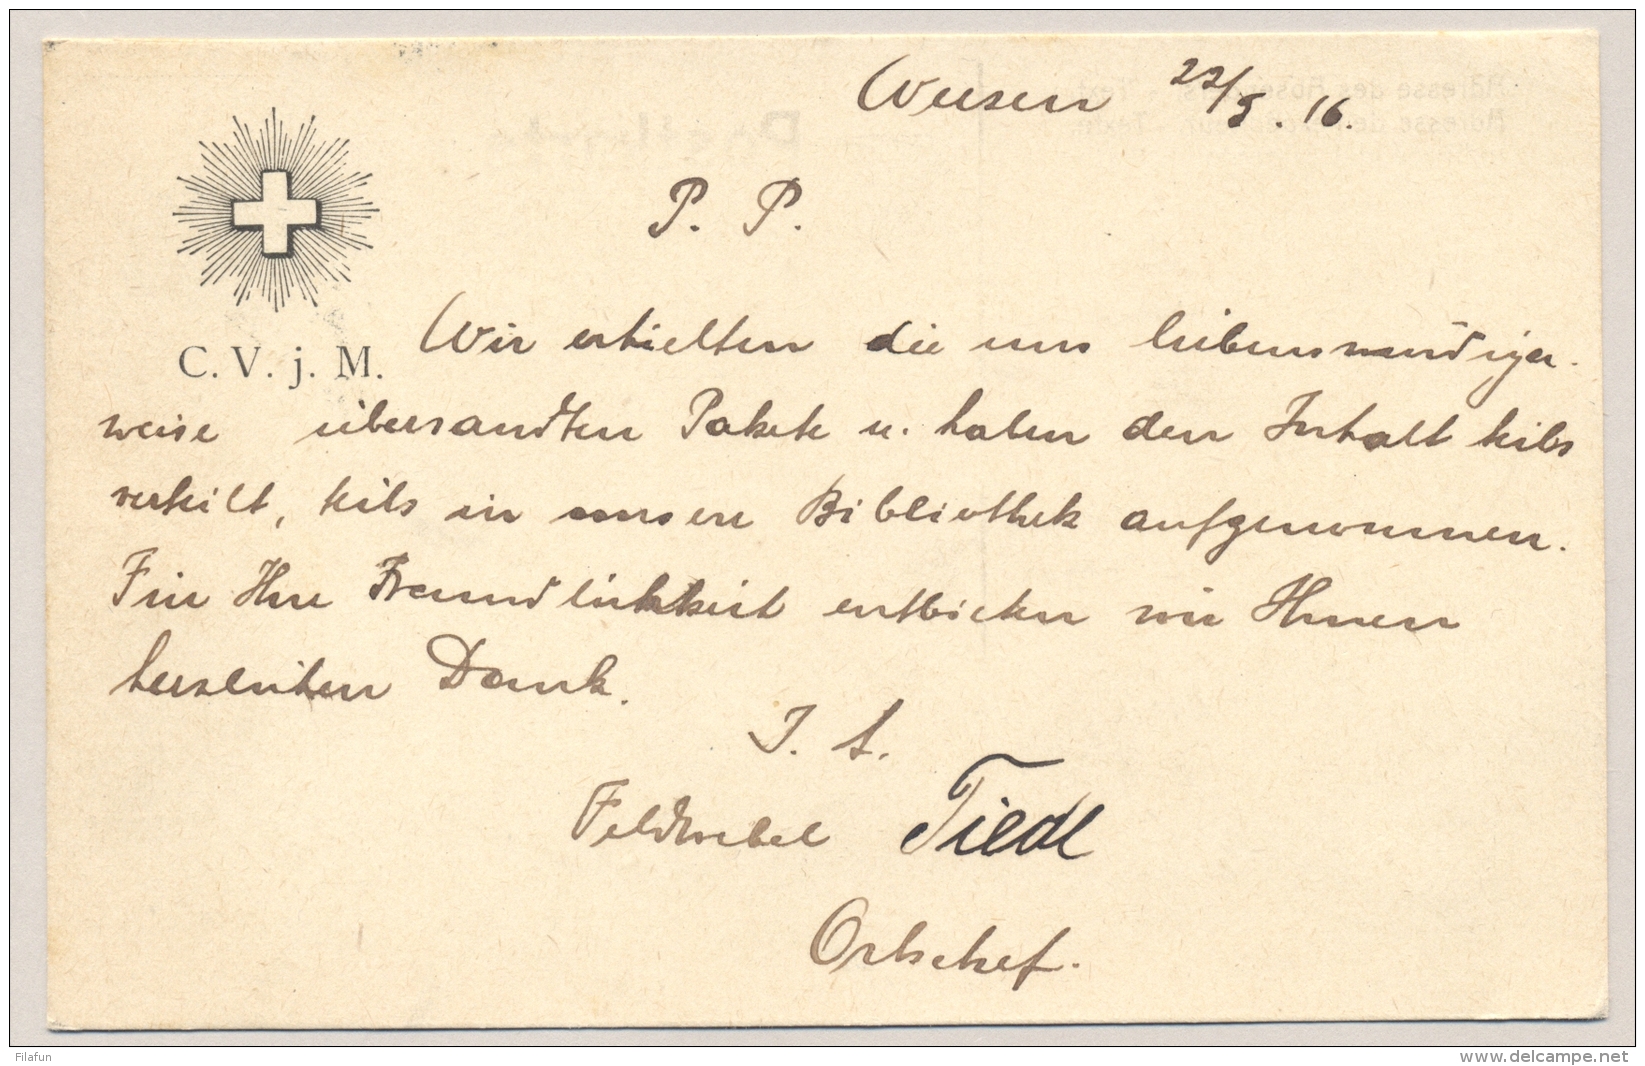 Weesen 22/5. 16.
P. P.
C. V. j. M.
Wir erhielten die uns liebenswürdiger-
weise übersandten Pakete u. haben den Inhalt teils
verteilt, teils in unsere Bibliothek aufgenommen.
Für Ihre Freundlichkeit entbieten wir Ihnen
herzlichen Dank.
I. A.
Feldwebel Tiedl
Ortschef.
Filafun
www.delcampe.net